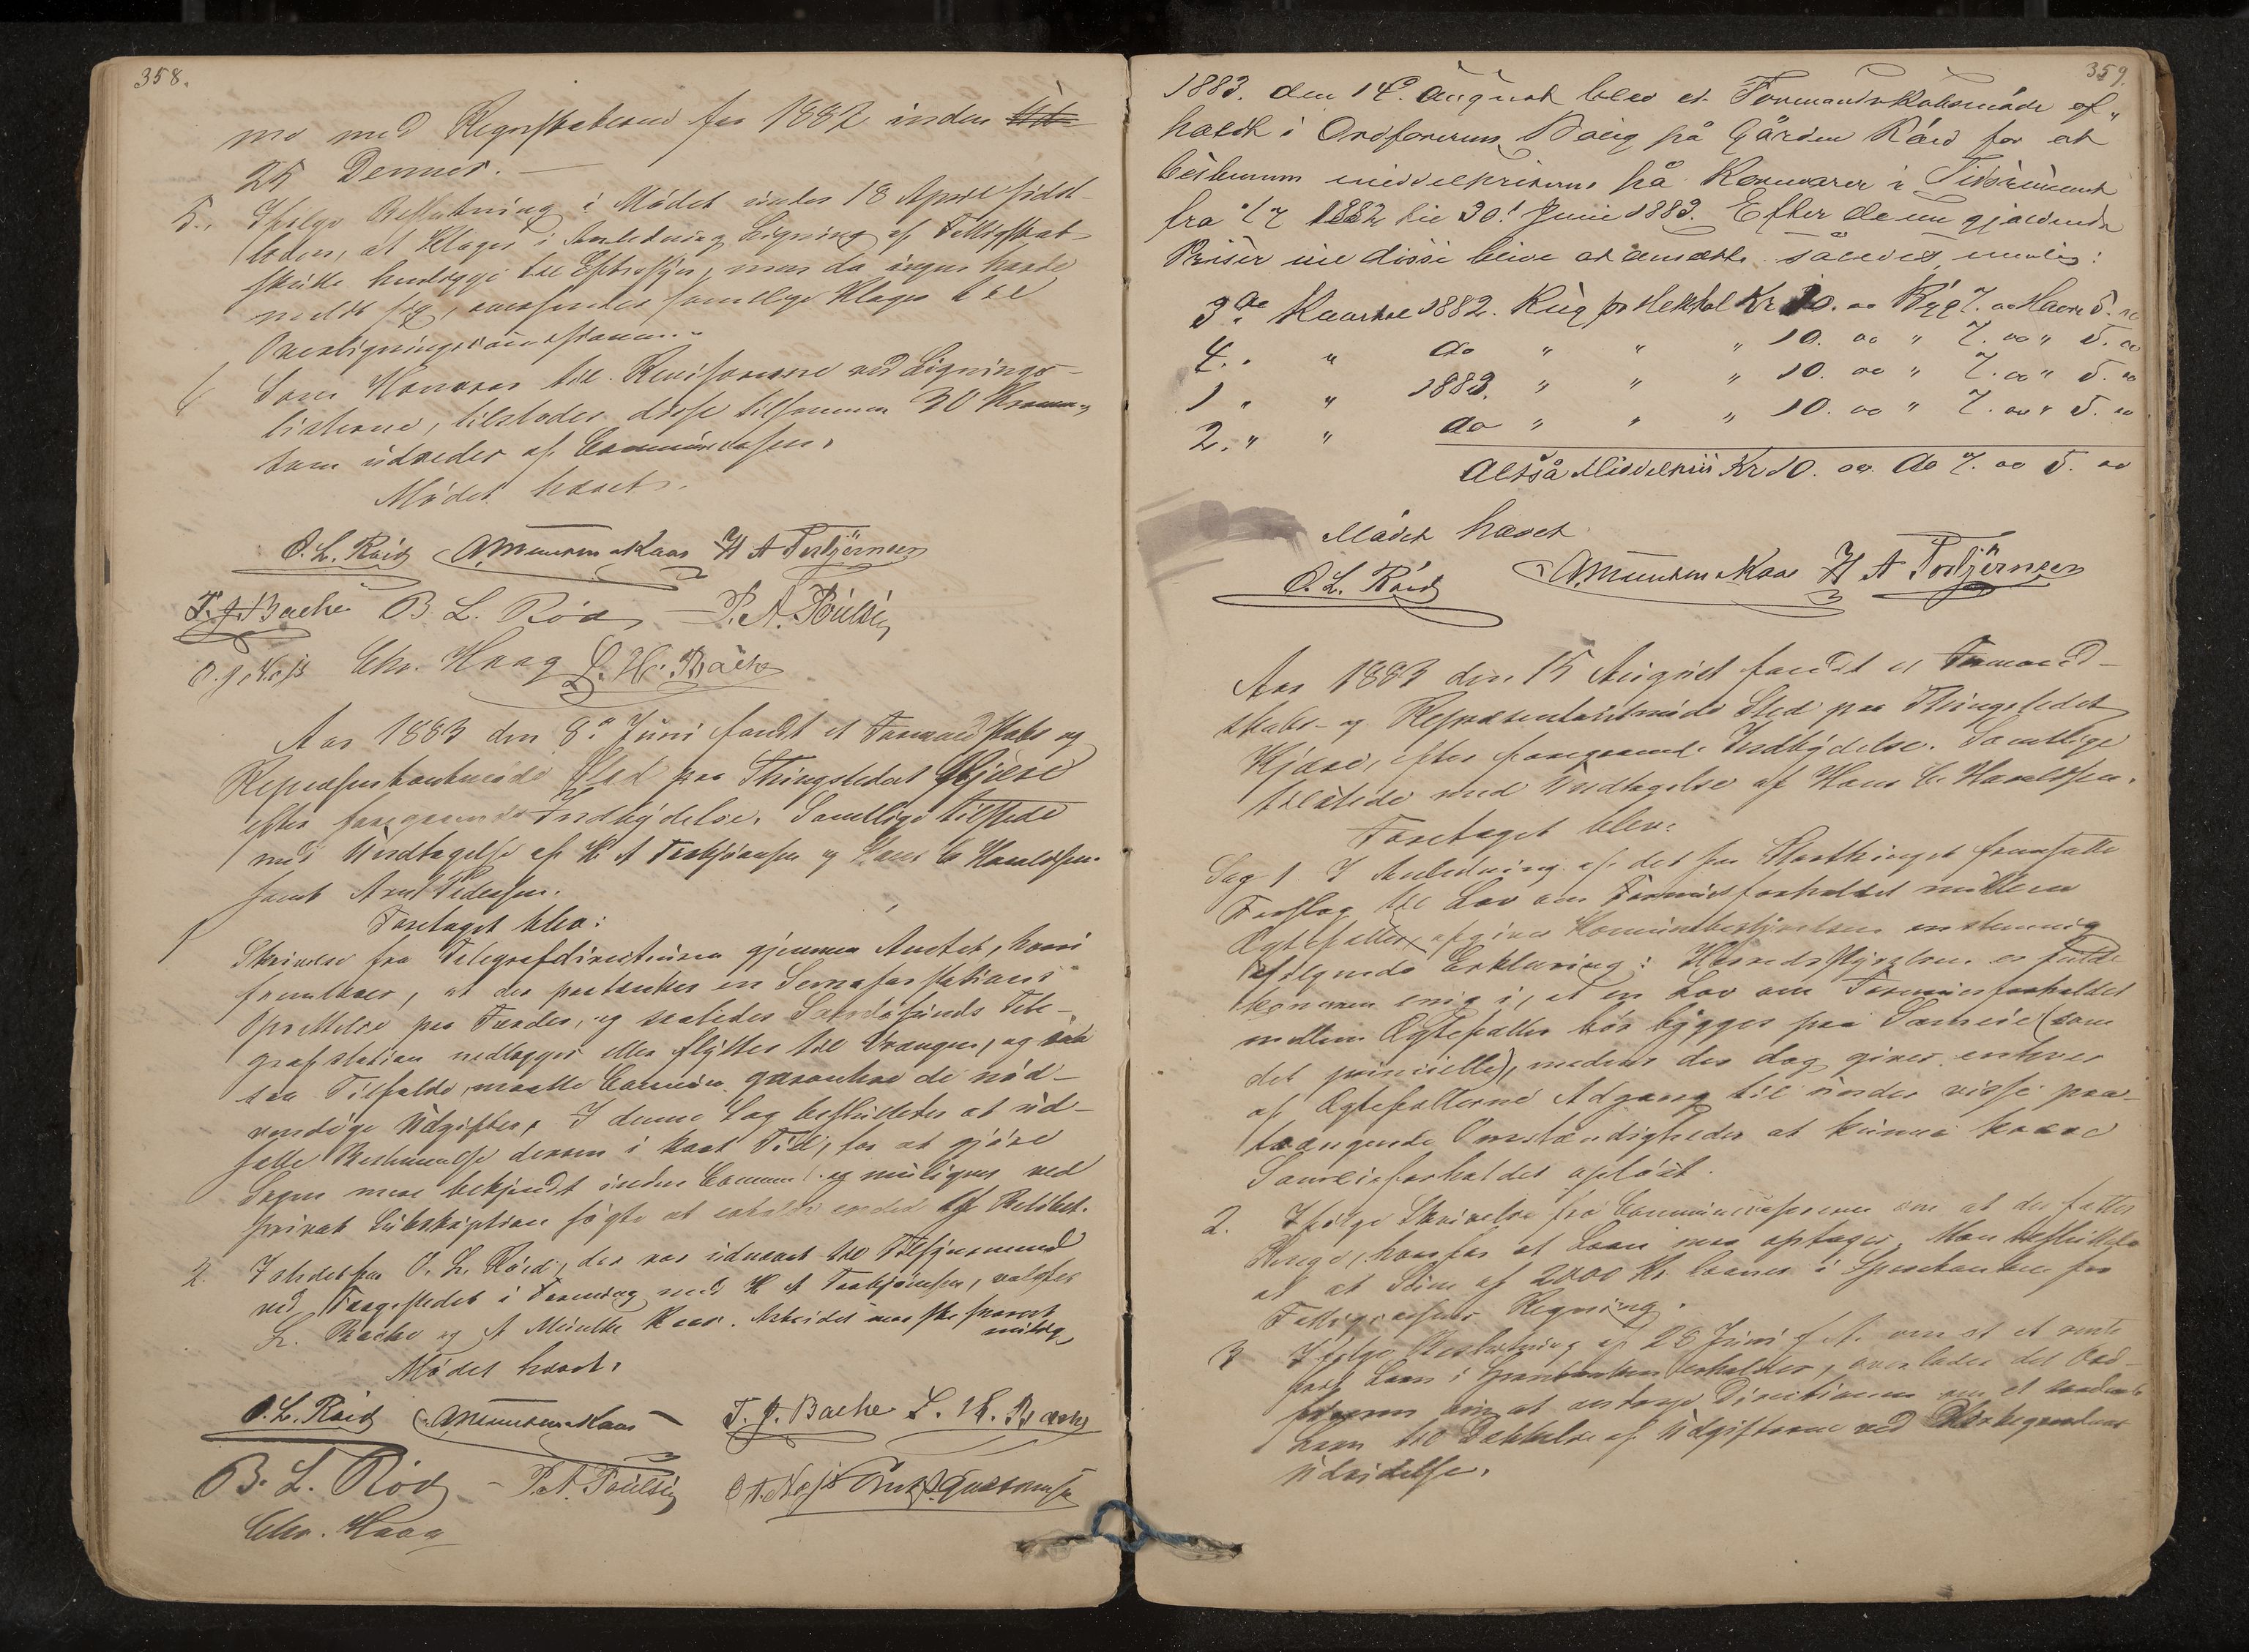 358.
mo med Regnskaberne for 1882 inden
25 Dennes. —
5. Ifølge Beslutning i Mødet under 18 April sidst-
leden, at Klager i Anledning Ligning af Fattigskat
skulde henlægge til Eftersyn, men da ingen havde
meldt sig, oversendes samtlige Klager til
Overligningscommissionen.
6 Som Honorar til Revisorerne ved Lignings-
listerne, tilstodes disse tilsammen 30 Kroner,
som udredes af Communecassen.
Mødet hævet.
O. L. Røed A. Muenten Kaas H A Torbjörnsen
T. J. Bache B. L. Rød P. A. Poulsen
Chr. Haag L. H. Bache
Aar 1883 den 8de Juni fandt et Formandskabs og
Repræsentantmøde Sted paa Thingstedet Kjære
efter foregaaende Indbydelse. Samtlige tilstede
med Undtagelse af H A Torbjørnsen og Hans C Haraldsen
samt Arnt Pedersen.
Foretaget blev:
1 Skrivelse fra Telegrafdirectøren gjennem Amtet, hvori
fremhæves, at der paatænkes en Semaforstations
Oprettelse paa Torder, og saaledes Sandøsunds Tele-
grafstation nedlægges eller flyttes til Vrængen, og
saa Tilfælde maatte Communen garantere de nød-
vendige Udgifter. I denne Sag besluttedes at ud-
sætte Bestemmelse derom i kort Tid, for at gjøre
Sagen mere bekjendt inden Commune og muligens ved
privat Subskription søgte at erholde endel af Beløbet.
2. Istedetfor O. L. Røed, der var udnævnt til Tilsynsmand
ved Faagestedet i Forening med H A Torbjørnsen, valgtes
L. Bache og A Munthe Kaas. Arbeidet maa ske snarest
muligt
Mødet hævet.
O. L. Røed A. Muenten Kaas T. J. Bache L. H. Bache
B. L. Rød – P. A. Poulsen
Chr. Haag
359.
1883. den 14de. August blev et Formandskabsmöde af„
holdt i Ordförerens Bolig på Gården Röed for at
bestemme middelpriserne på Kornvarer i Tidsrummet
fra 1/7 1882 til 30te Juni 1883. Efter de nu gjældende
Priser vil disse blive at ansætte således nemlig:
3de Kvartal 1882. Rug pr Hektol Kr 10. 00 Byg 7. 00 Havre 5. 00
4. " " do " " " 10. 00 " 7. 00 " 5. 00
1 " " 1883. " " " 10. 00 " 7. 00 " 5. 00
2. " " do " " " 10. 00 " 7. 00 " 5. 00
Altså Middelpris Kr 10. 00 do 7. 00 5. 00
Mödet hævet
O. L. Röed A. Muenten Kaas H A Torbjörnsen
Aar 1883 den 15 August fandt et Formand-
skabs- og Repræsentantmøde Sted paa Thingstedet
Kjære, efter foregaaende Indbydelse. Samtlige
tilstede med Undtagelse af Hans C. Haraldsen.
Foretaget blev:
Sag 1 I Anledning af det for Storthinget fremsatte
Forslag til Lov om Formuesforholdet mellem
Ægtefæller, afgiver Komunebestyrelsen enstemmig
følgende Erklæring: Herredsstyrelsen er fuldt
kommen enig i, at en Lov om Formuesforholdet
mellem Ægtefæller bør bygges paa Sameie (som
det principielle), medens der dog gives enhver
af Ægtefællerne Adgang til under visse paa-
trængende Omstændigheder at kunne kræve
Sameieforholdet opløst.
2. Ifølge Skrivelse fra Communecassereren om at der fattes
Penge, hvorfor et Laan maa optages. Man besluttede
at en Sum af 2000 Kr. laanes i Sparebanken for
Fattigcassens Regning.
3 Ifølge Beslutning af 28 Juni d. A. om at et rente
frit Laan i Sparebanken erholdes, overlades det Ord-
føreren at andrage Directionen om et saadant
Laan til Dækkelse af Udgifterne ved Kirkegaardens
Udvidelse.